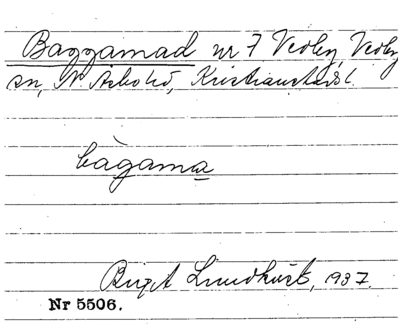 Baggamad nr 7 Vedby, Vedby
sn, N. Åsbo hd, Kristianstads l.
bàgama
Birgit Lundkvist, 1937.
Nr 5506.